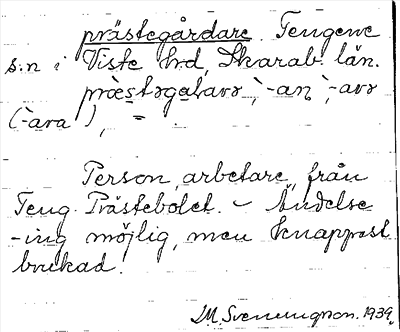 prästegårdare. Tengene
s.n i Viste hd, Skarab. län.
præstəgaɫarə, `-an, `-arə
(`-ara), =
Person, arbetare, från
Teng. Prästebolet. – Ändelse
-ing möjlig, men knappast
brukad.
M. Svenungson. 1939.